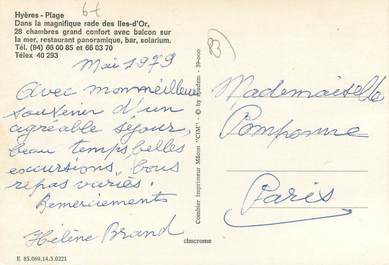 Hyères - Plage
Dans la magnifique rade des Iles-d'Or,
28 chambres grand confort avec balcon sur
la mer, restaurant panoramique, bar, solarium.
Tél. (94) 66 00 85 et 66 03 70
Télex 40 293
Mai 1979
Avec mon meilleur
souvenir d'un
agreable séjour,
beau temps belles
excursions, bons
repas variés.
Remerciements
Hélène Brand
E 85.069.14.3.0221
Combier Imprimeur Mâcon "CIM" - © by
cimcrome
Mademoiselle
Pomponne
Paris